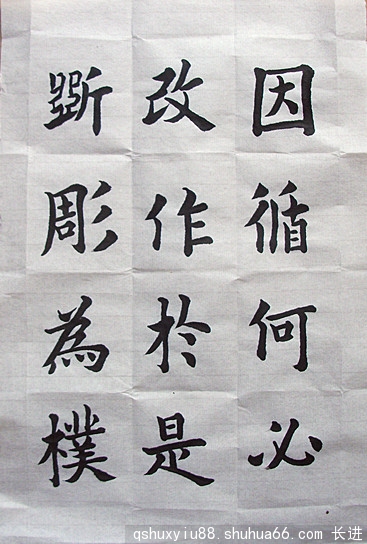 因循何必
改作於是
斲彫為樸
qshuxyiu88.shuhua66.com 长进